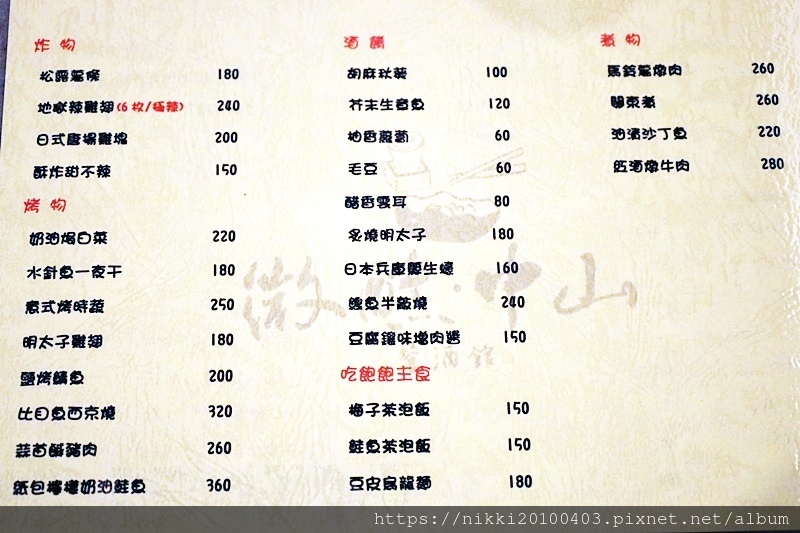 炸 物
松露薯條 180
地獄辣雞翅(6枚/極辣) 240
日式唐揚雞塊 200
酥炸甜不辣 150
烤 物
奶油焗白菜 220
水針魚一夜干 180
意式烤時蔬 250
明太子雞翅 180
鹽烤鯖魚 200
比目魚西京燒 320
蒜苗鹹豬肉 260
紙包檸檬奶油鮭魚 360
酒 餚
胡麻秋葵 100
芥末生章魚 120
柚香蘿蔔 60
毛豆 60
醋香雲耳 80
炙燒明太子 180
日本兵庫縣生蠔 160
鰹魚半敲燒 240
豆腐鑲味增肉醬 150
吃飽飽主食
梅子茶泡飯 150
鮭魚茶泡飯 150
豆皮烏龍麵 180
煮 物
馬鈴薯燉肉 260
關東煮 260
油漬沙丁魚 220
紅酒燉牛肉 280
微醺·中山
酒館
https://nikki20100403.pixnet.net/album